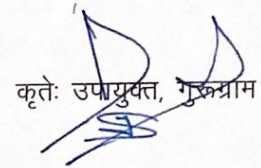 कृतेः उपायुक्त, गुरूग्राम